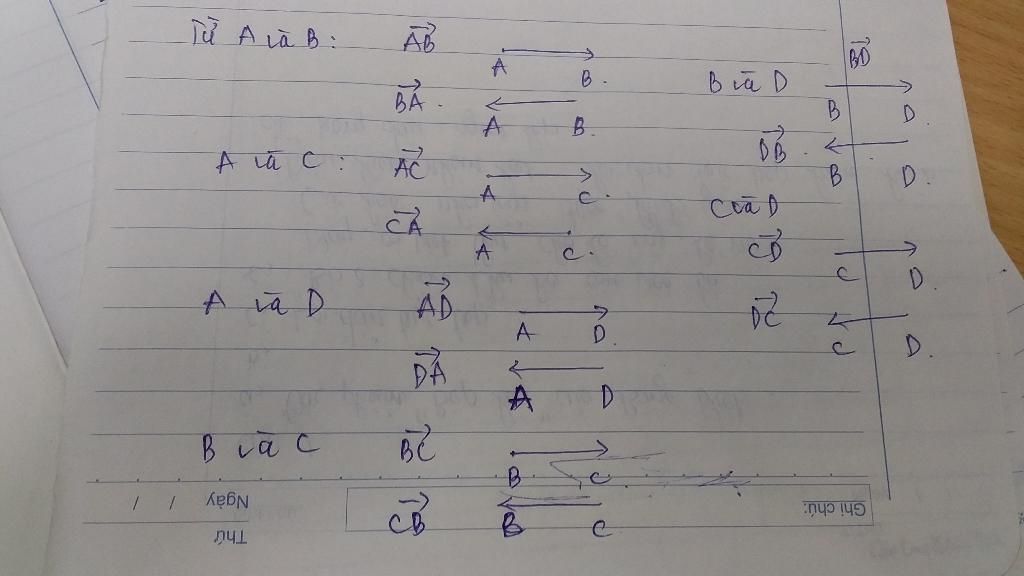 Từ A và B: AB→
A B.
BA→.
A B.
A và C: AC→
A C.
CA→
A C.
A và D AD→
A D.
DA→
A D
B và C BC→
B C
CB→
B C
BD→
B và D
B D.
DB→.
B D.
C và D
CD→
C D.
DC→
C D.
Ghi chú:
Ngày / /
Thứ